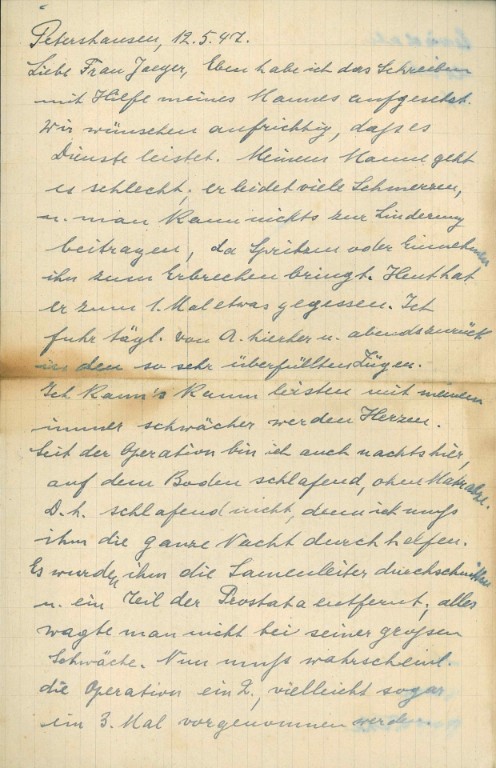 Petershausen, 12.5.47.
Liebe Frau Jaeger, Eben habe ich das Schreiben
mit Hilfe meines Mannes aufgesetzt.
Wir wünschen aufrichtig, dass es
Dienste leistet. Meinem Manne geht
es schlecht; er leidet viele Schmerzen,
u. man kann nichts zur Linderung
beitragen, da Spritzen oder Einnehmen
ihn zum Erbrechen bringt. Heut hat
er zum 1. Mal etwas gegessen. Ich
fuhr tägl. von A. hierher u. abends zurück
in den so sehr überfüllten Zügen.
Ich kann's kaum leisten mit meinem
immer schwächer werden Herzen.
Seit der Operation bin ich auch nachts hier,
auf dem Boden schlafend, ohne Matratze.
D.h. schlafend nicht, denn ich muss
ihm die ganze Nacht durch helfen.
Es wurden ihm die Samenleiter durchschnitten
u. ein Teil der Prostata entfernt; alles
wagte man nicht bei seiner grossen
Schwäche. Nun muss wahrscheinl.
die Operation ein 2., vielleicht sogar
ein 3. Mal vorgenommen werden.